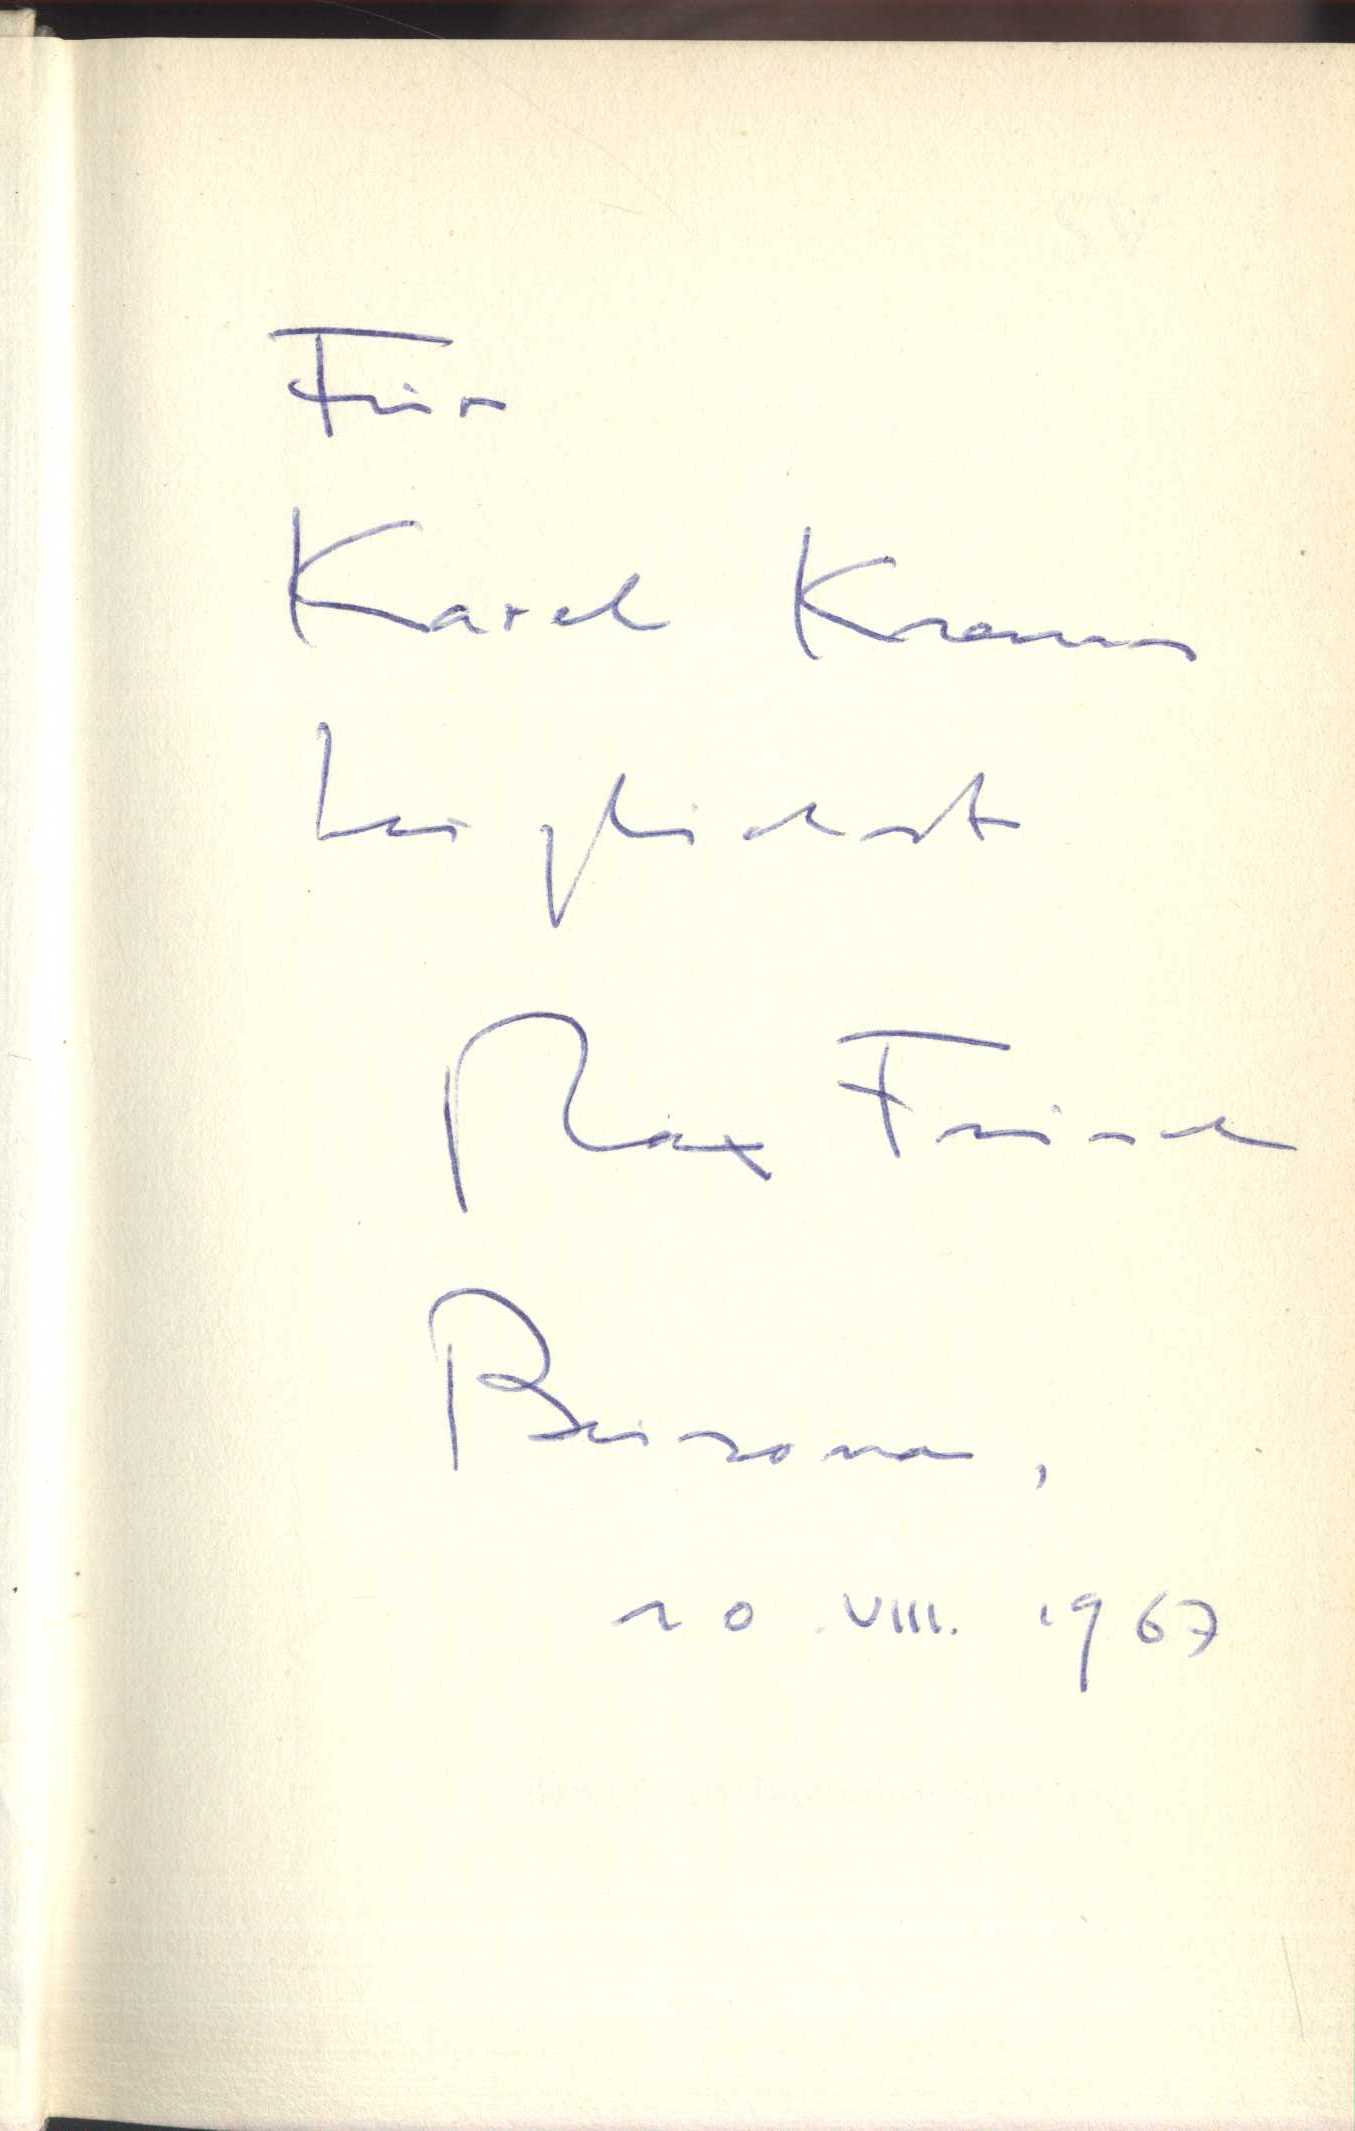 Für
Karel Kraus
herzlichst
Max Frisch
Berzona,
10. VIII. 1967